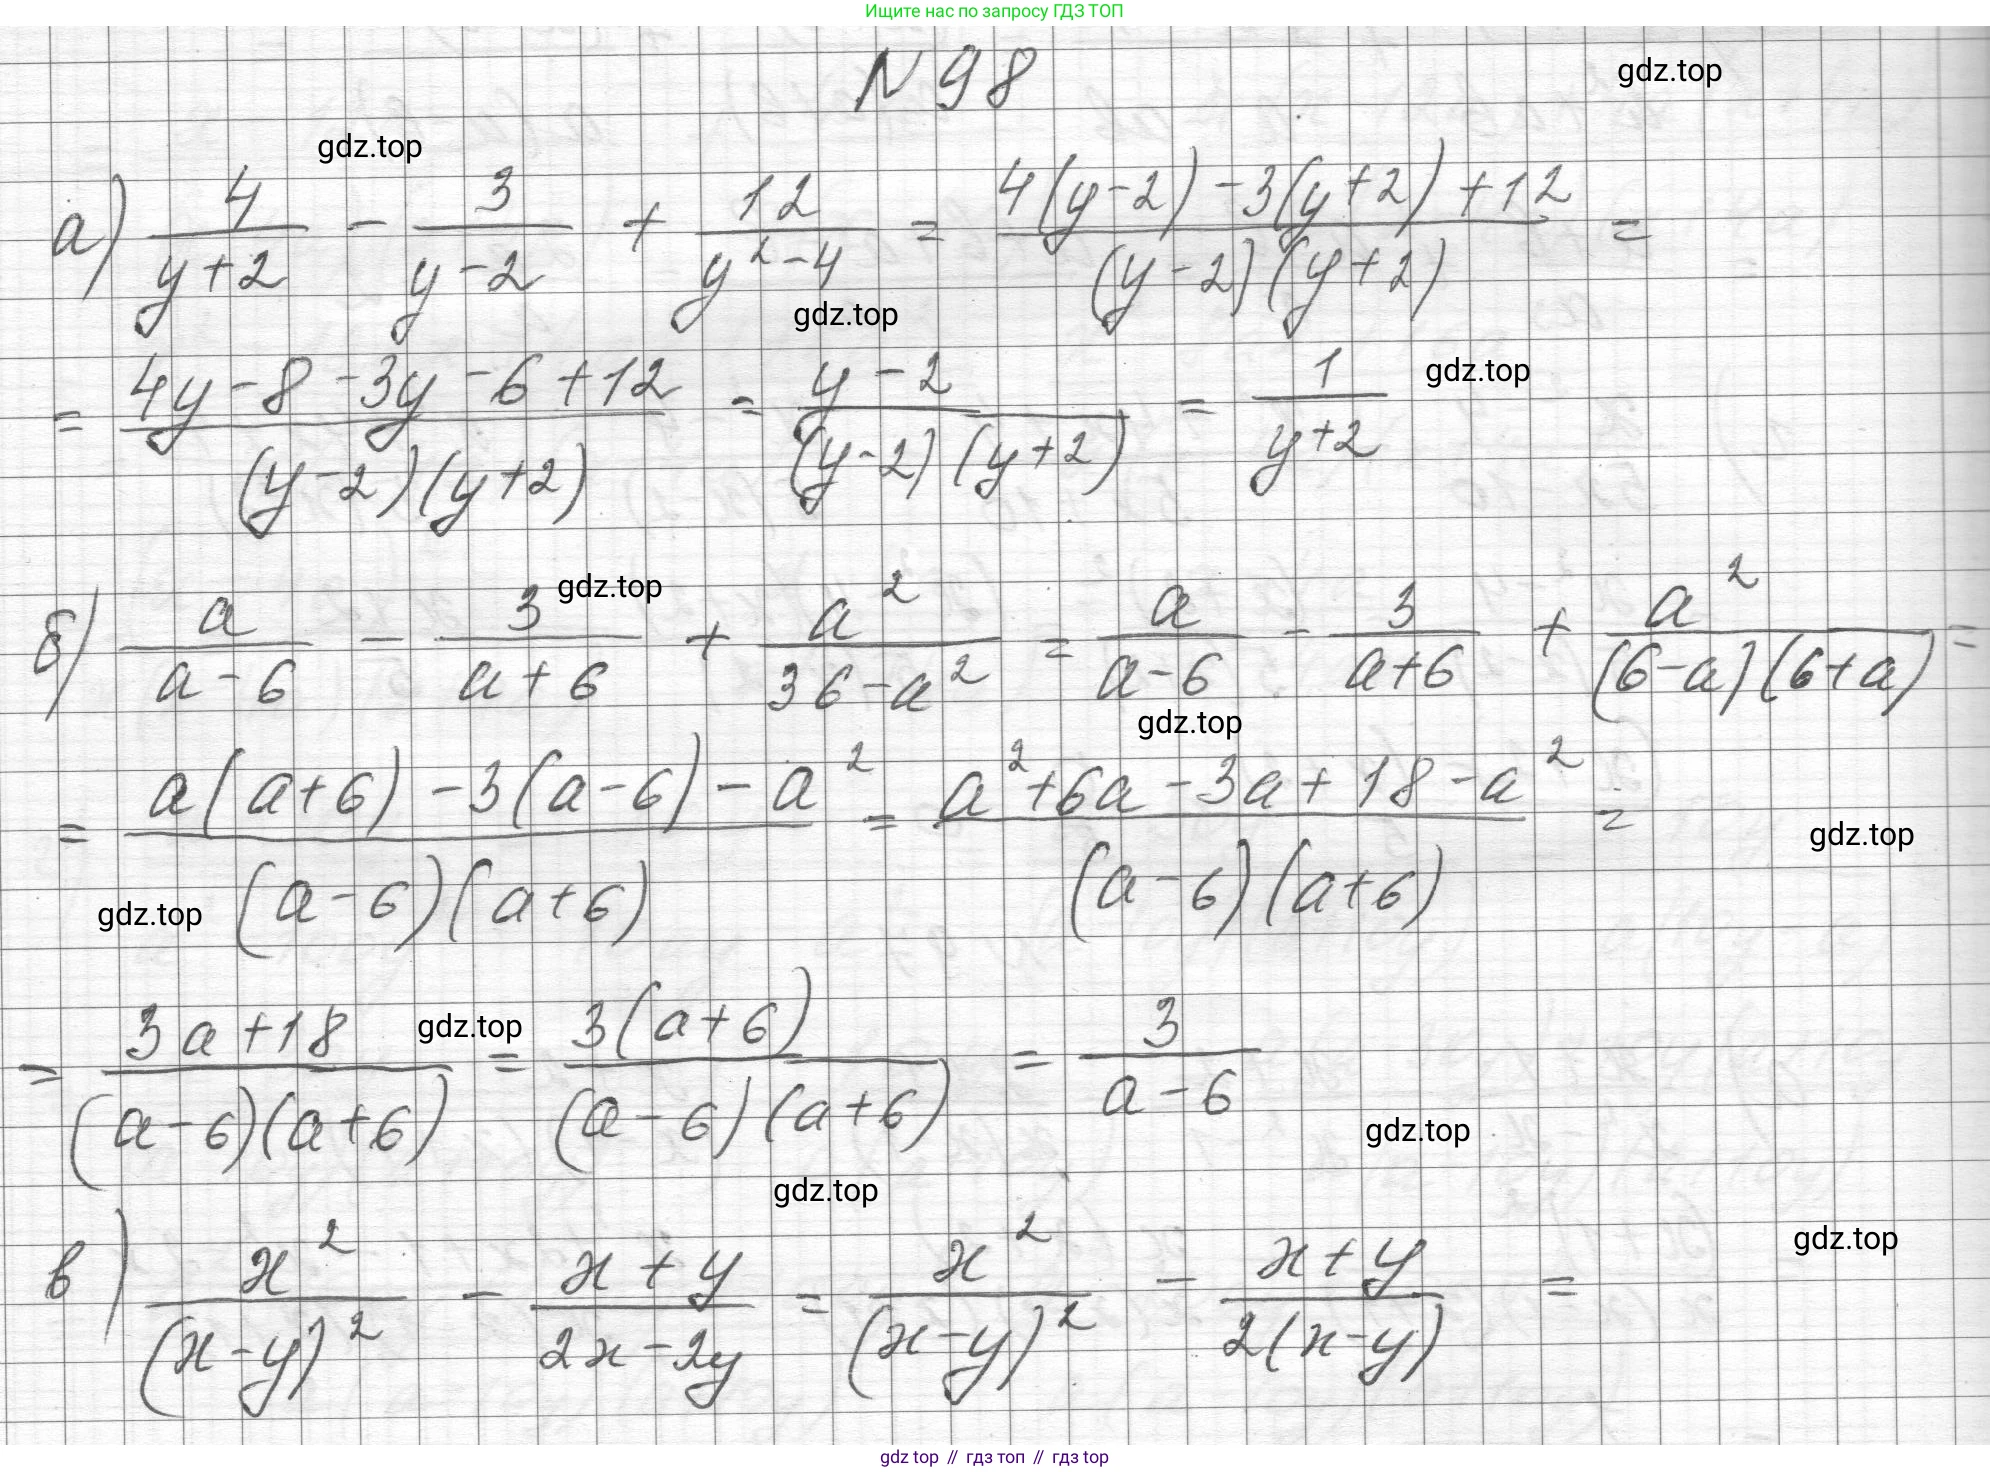 Ищите нас по запросу ГДЗ ТОП
N 98
gdz.top
gdz.top
а) 4/(y+2) - 3/(y-2) + 12/(y²-4) = (4(y-2) -3(y+2) +12)/((y-2)(y+2)) =
gdz.top
= (4y-8-3y-6+12)/((y-2)(y+2)) = (y-2)/((y-2)(y+2)) = 1/(y+2)
gdz.top
gdz.top
б) a/(a-6) - 3/(a+6) + a²/(36-a²) = a/(a-6) - 3/(a+6) + a²/((6-a)(6+a)) =
gdz.top
= (a(a+6) -3(a-6) - a²)/((a-6)(a+6)) = (a²+6a-3a+18-a²)/((a-6)(a+6)) =
gdz.top
gdz.top
= (3a+18)/((a-6)(a+6)) = (3(a+6))/((a-6)(a+6)) = 3/(a-6)
gdz.top
gdz.top
gdz.top
в) x²/(x-y)² - (x+y)/(2x-2y) = x²/(x-y)² - (x+y)/(2(x-y)) =
gdz.top
gdz top // гдз топ // гдз top